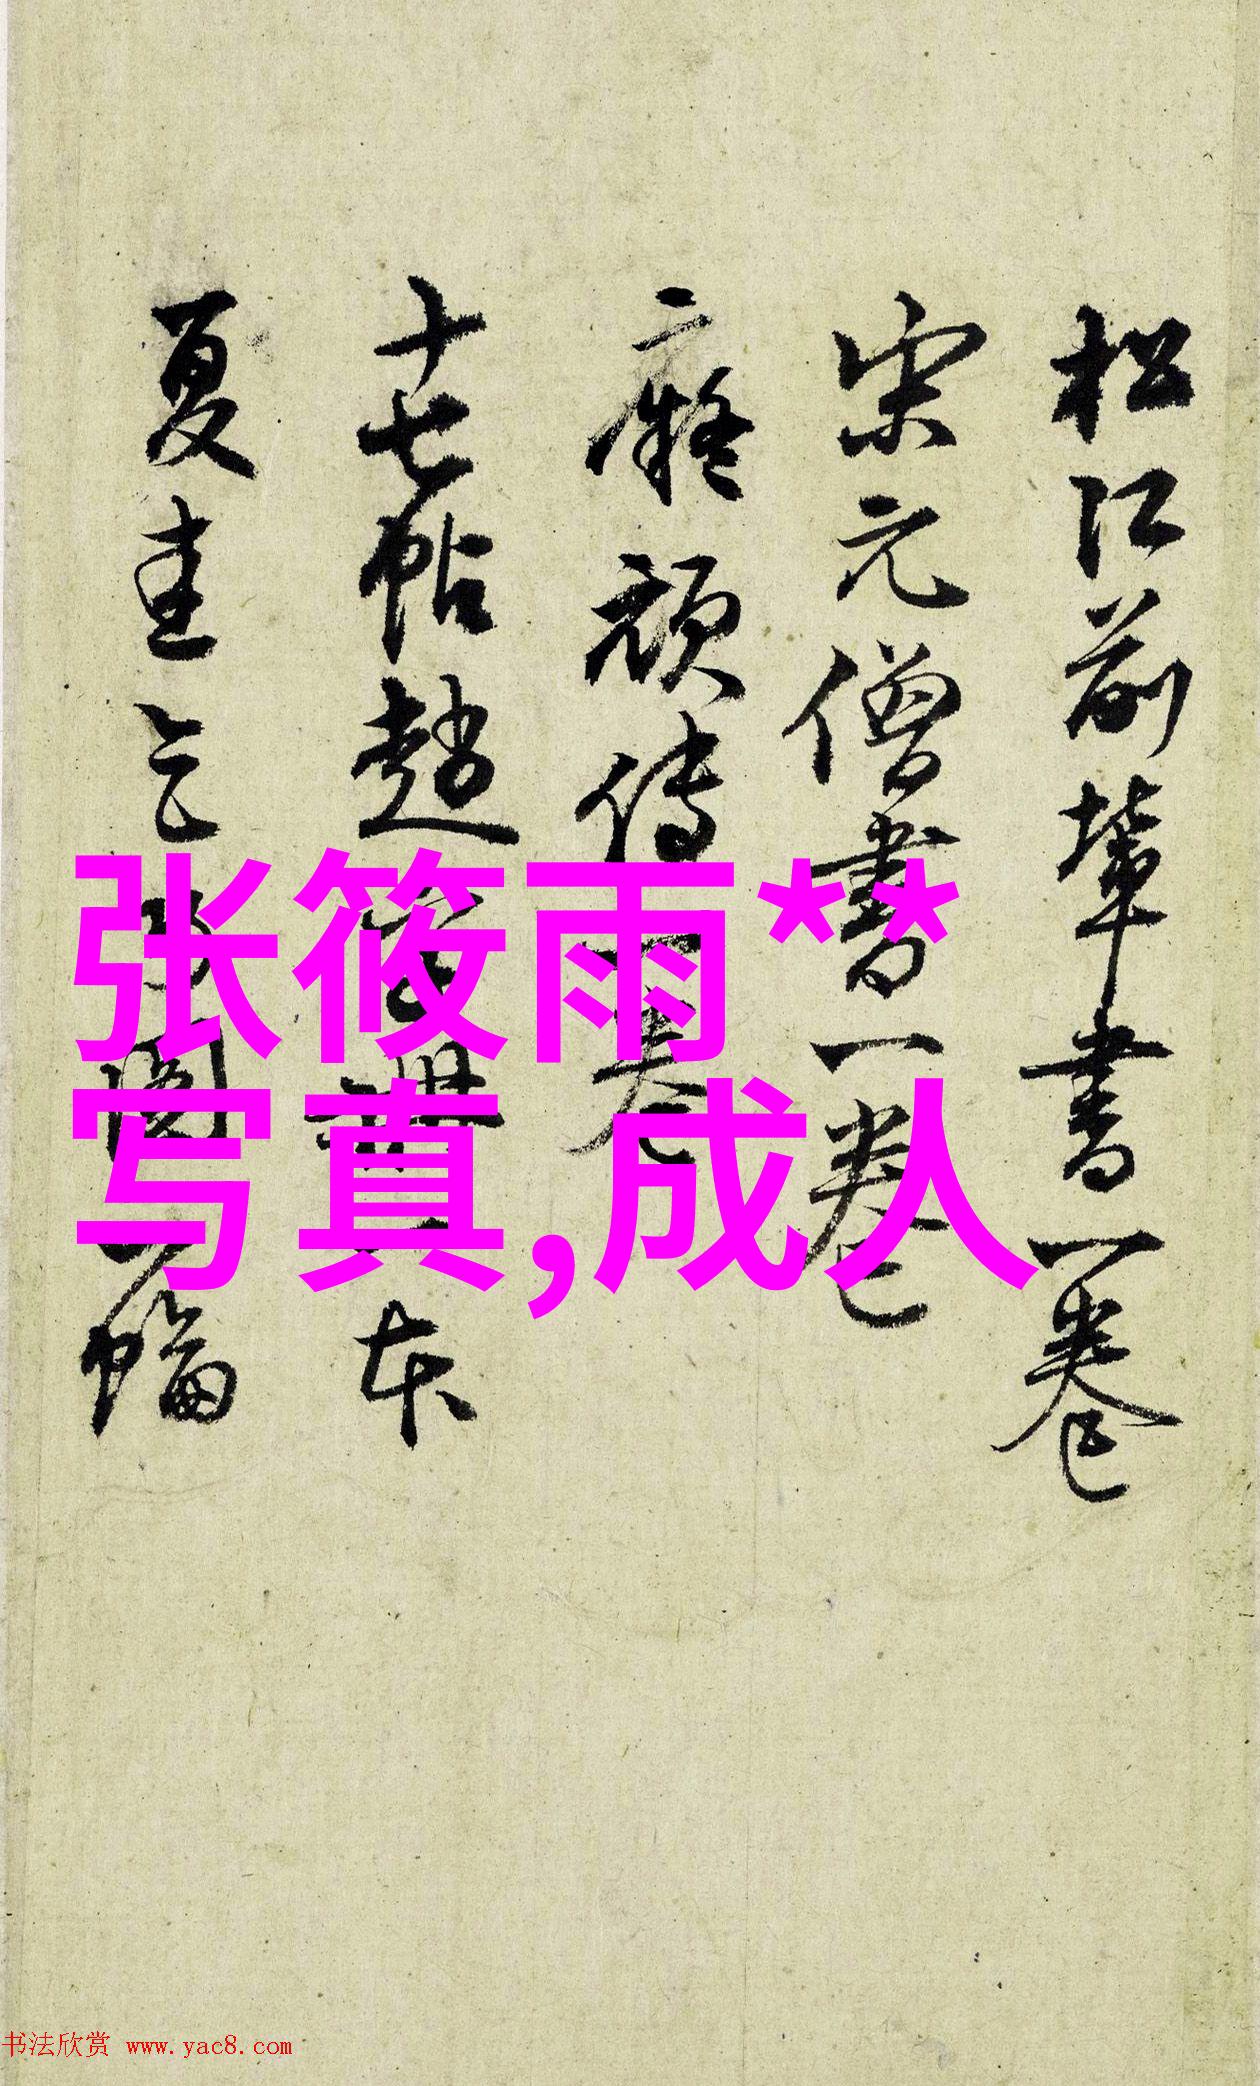 松江前輩書一卷
宋元僧書一卷
二癡頑傳一卷
十七帖趙
本
夏圭
圖一幅
张筱雨**
写真,成人
书法欣赏 www.yac8.com